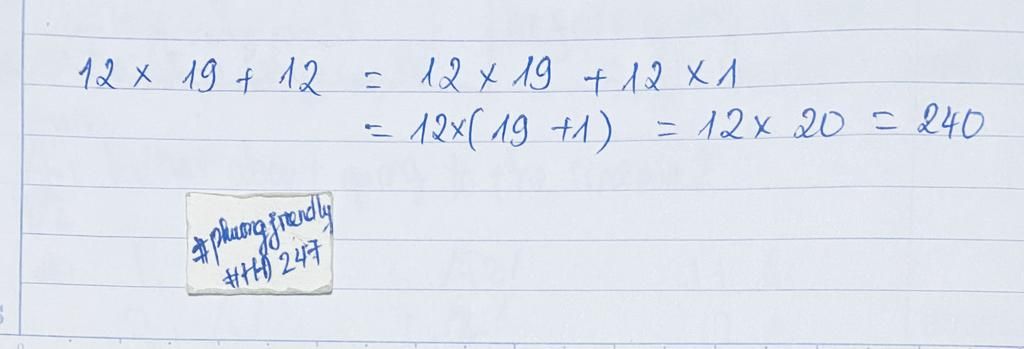 12 × 19 + 12 = 12 × 19 + 12 × 1
= 12×( 19 +1) = 12 × 20 = 240
#phuongfriendly
#HĐ 247